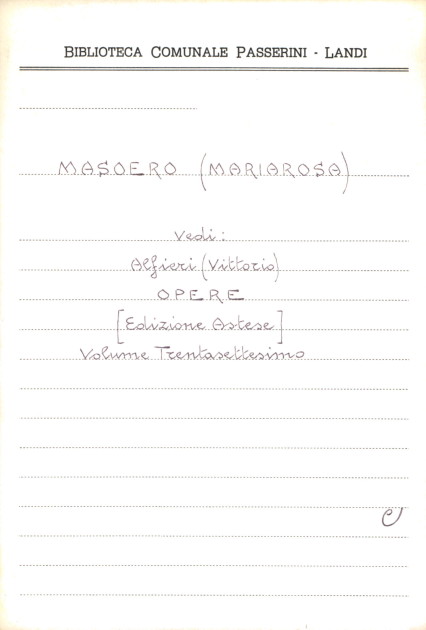 BIBLIOTECA COMUNALE PASSERINI - LANDI
MASOERO (MARIAROSA)
Vedi:
Alfieri (Vittorio)
OPERE
[Edizione Astese]
Volume Trentasettesimo